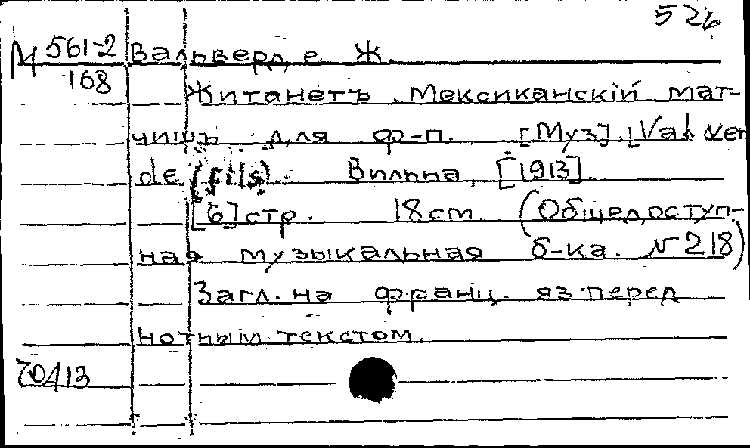 526
М 561-2 Вальверде Ж.
168
Житанетъ. Мексиканскій мат-
чишъ для ф-п. [Муз]. [Valver
de (fils). Вильна, [1913].
[6] стр. 18 см. (Общедоступ-
ная музыкальная б-ка. № 218)
Загл. на франц. яз. перед
нотным текстом.
70413